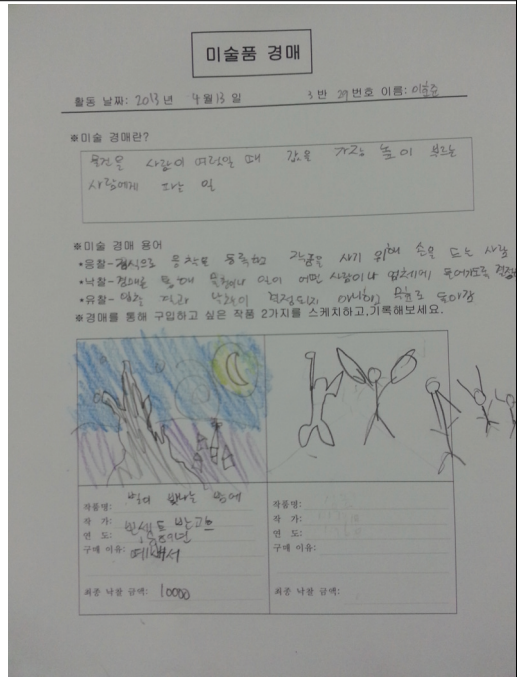 미술품 경매
활동 날짜: 2013년 4월 13일 3반 29번호 이름:
※미술 경매란?
물건을 사람이 여럿일 때 값을 가장 높이 부르는
사람에게 파는 일
※미술 경매 용어
•응찰- 응찰표 등록하고 작품을 사기 위해 손을 드는 사람
•낙찰-경매를 통해 물건이나 일이 어떤 사람이나 업체에 돌아가도록 결정
•유찰- 낙찰이 결정되지 아니하고 돌아감
※경매를 통해 구입하고 싶은 작품 2가지를 스케치하고,기록해보세요.
작품명: 별이 빛나는 밤에
작 가: 빈센트 반고흐
연 도:
구매 이유:
최종 낙찰 금액: 10000
작품명:
작 가:
연 도:
구매 이유:
최종 낙찰 금액: